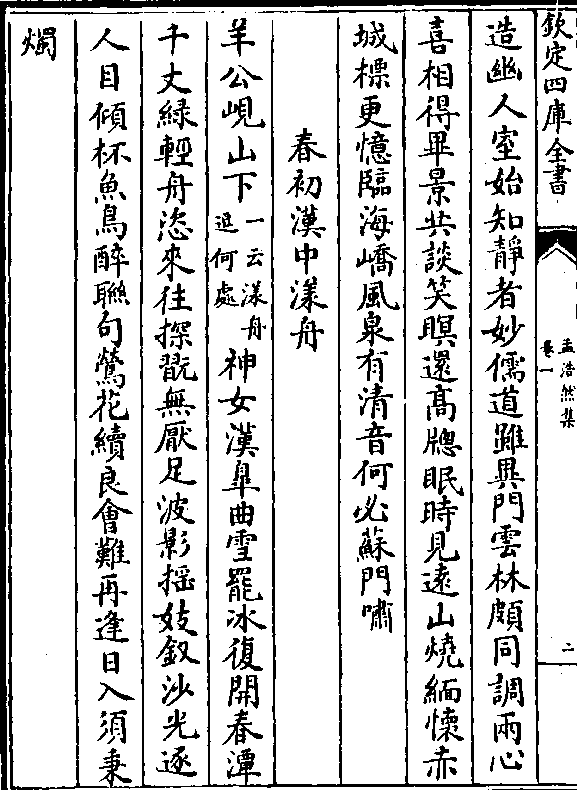 欽定四庫全書
孟浩然集
卷一
二
造幽人室始知靜者妙儒道雖異門雲林頗同調兩心
喜相得畢景共談笑暝還高牕眠時見遠山燒緬懷赤
城標更憶臨海嶠風泉有清音何必蘇門嘯
春初漢中漾舟
羊公峴山下一云漾舟逗何處神女漢臯曲雪罷冰復開春潭
千丈綠輕舟恣來往探翫無厭足波影揺妓釵沙光逐
人目傾杯魚鳥醉聯句鶯花續良會難再逢日入須秉
燭